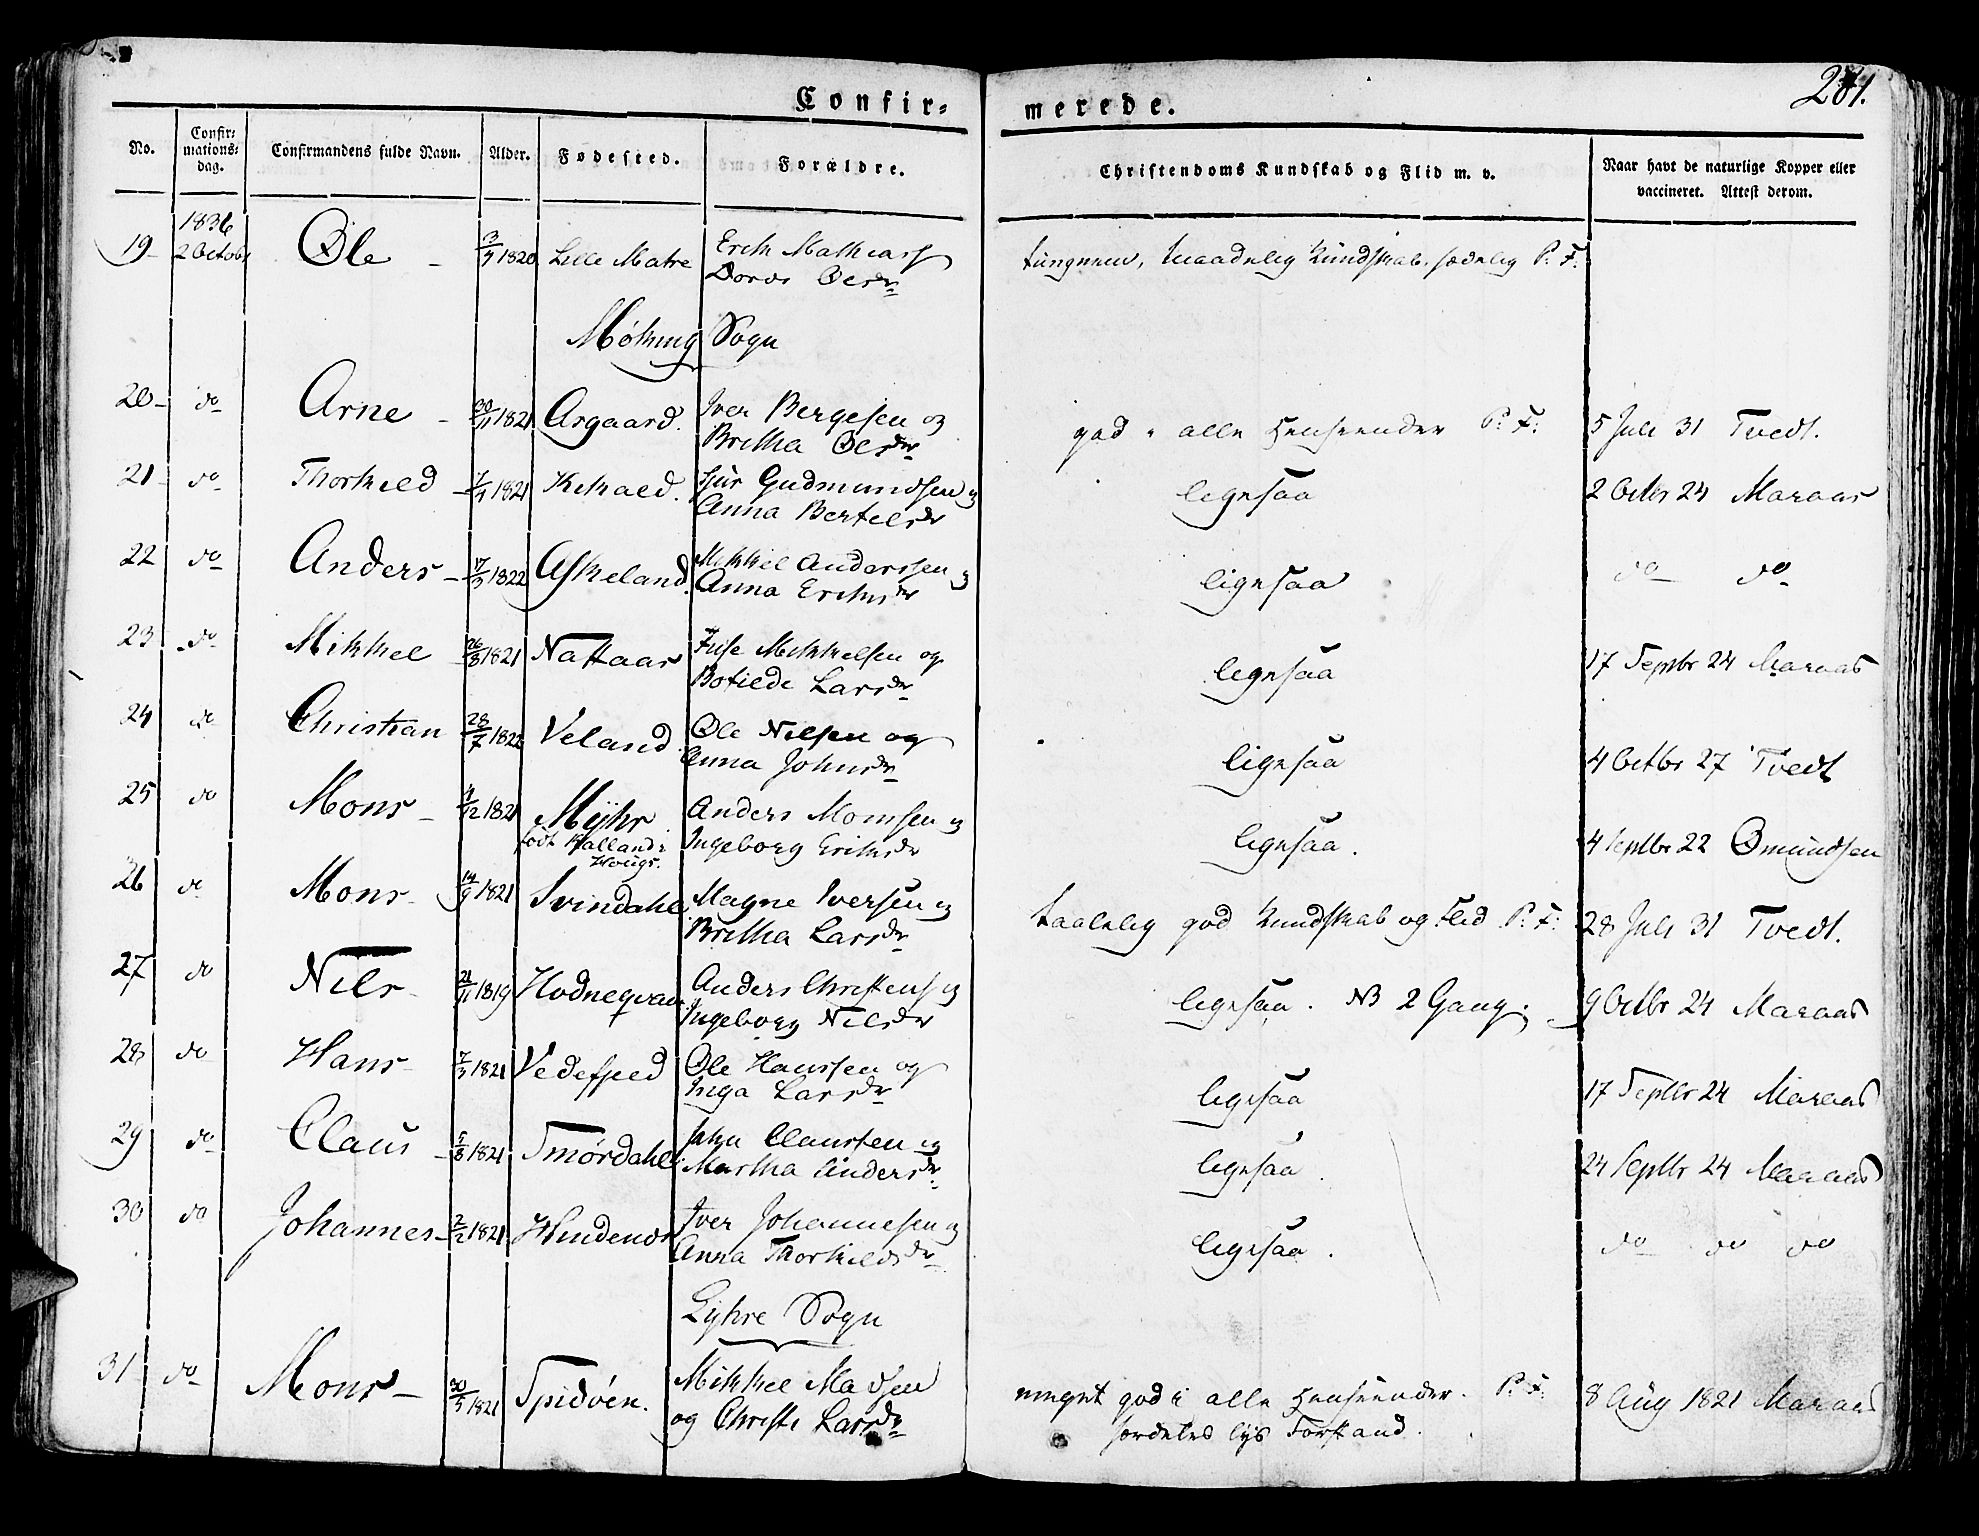 281.
Confir= merede.
No. Confir= mations= dag. Confirmandens fulde Navn. Alder. Fødested. Forældre. Christendoms Kundskab og Flid m. v. Naar havt de naturlige Kopper eller vaccineret. Attest derom.
1836
19 2 Octob Ole 1820 Lille Matre Erik Mathias
Olsdr tungnem, maadelig Kundskab, sædelig P. F.
Møking Sogn
20 do Arne 30/11 1821 Asgaard. Iver Bergesen og
Britha Olsdr god i alle Henseender P. F. 5 Juli 31 Tvedt.
21 do Thorkild 1821 Sjur Gudmundsen og
Anna Bertelsdr ligesaa 2 Octbr 24 Maraas
22 do Anders 17/3 1822 Askeland. Mikkel Anderssen og
Anna Eriksdr ligesaa do do
23 do Mikkel 26/8 1821 Nattaas Mikkelsen og
Botilde Larsdr ligesaa 17 Septbr 24 Maraas
24 do Christian 28/7 1822 Veland Ole Nilsen og
Anna Johnsdr ligesaa 4 Octbr 27 Tvedt
25 do Mons 4/12 1821 Myhr Anders Monssen og
født Halland i Hougs. Ingeborg Eriksdr ligesaa. 4 Septbr 22 Omundsen
26 do Mons 14/9 1821 Svindahl Magne Iversen og
Britha Larsdr taalelig god Kundskab og Flid P. F. 28 Juli 31 Tvedt.
27 do Nils 21/11 1819 Hodneqvam Anders Christens og
Ingeborg Nilsdr ligesaa. NB 2 Gang. 9 Octbr 24 Maraas
28 do Hans 7/3 1821 Ole Hanssen og
Inga Larsdr ligesaa 17 Septbr 24 Maraas
29 do Claus 5/8 1821 Smørdahl John Claussen og
Martha Andersdr ligesaa. 24 Septbr 24 Maraas
30 do Johannes 2/2 1821 Hindenes Iver Johannesen og
Anna Thorkildsdr ligesaa. do do do
Lyhre Sogn
31 do Mons 30/5 1821 Spidøen. Mikkel Madsen
og Christi Larsdr meget god i alle Henseender. P. F. 8 Aug 1821 Maraas
særdeles lys Forstand.